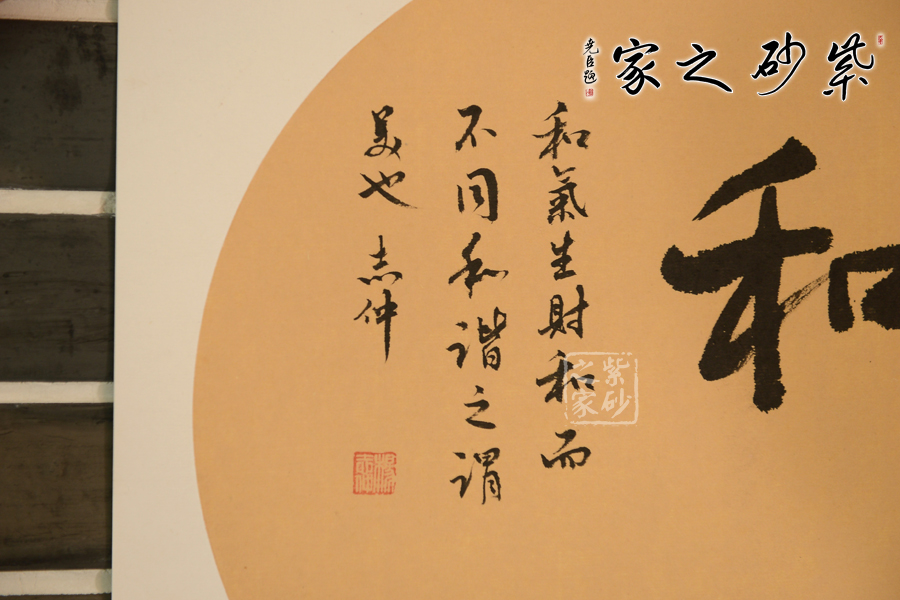 紫砂之家
尧臣题
和
和氣生財和而
不同和谐之谓
美也 志仲
紫砂之家